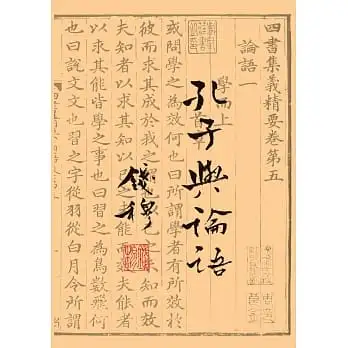 孔子與論語
錢穆
四書集義精要卷第五
論語一
學而上
或問學之為效何也曰所謂學者有所效於
彼而求其成於我之
夫知者以求其知以己之未能而夫能者
以求其能皆學之事也曰習之為鳥數飛何
也曰說文文也習之字從羽從白月令所謂